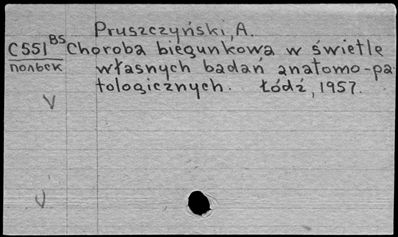 Pruszczyński, A.
C551 BS Choroba biegunkowa w świetle
польск własnych badań anatomo-pa-
tologicznych. Łódź, 1957.
V
V